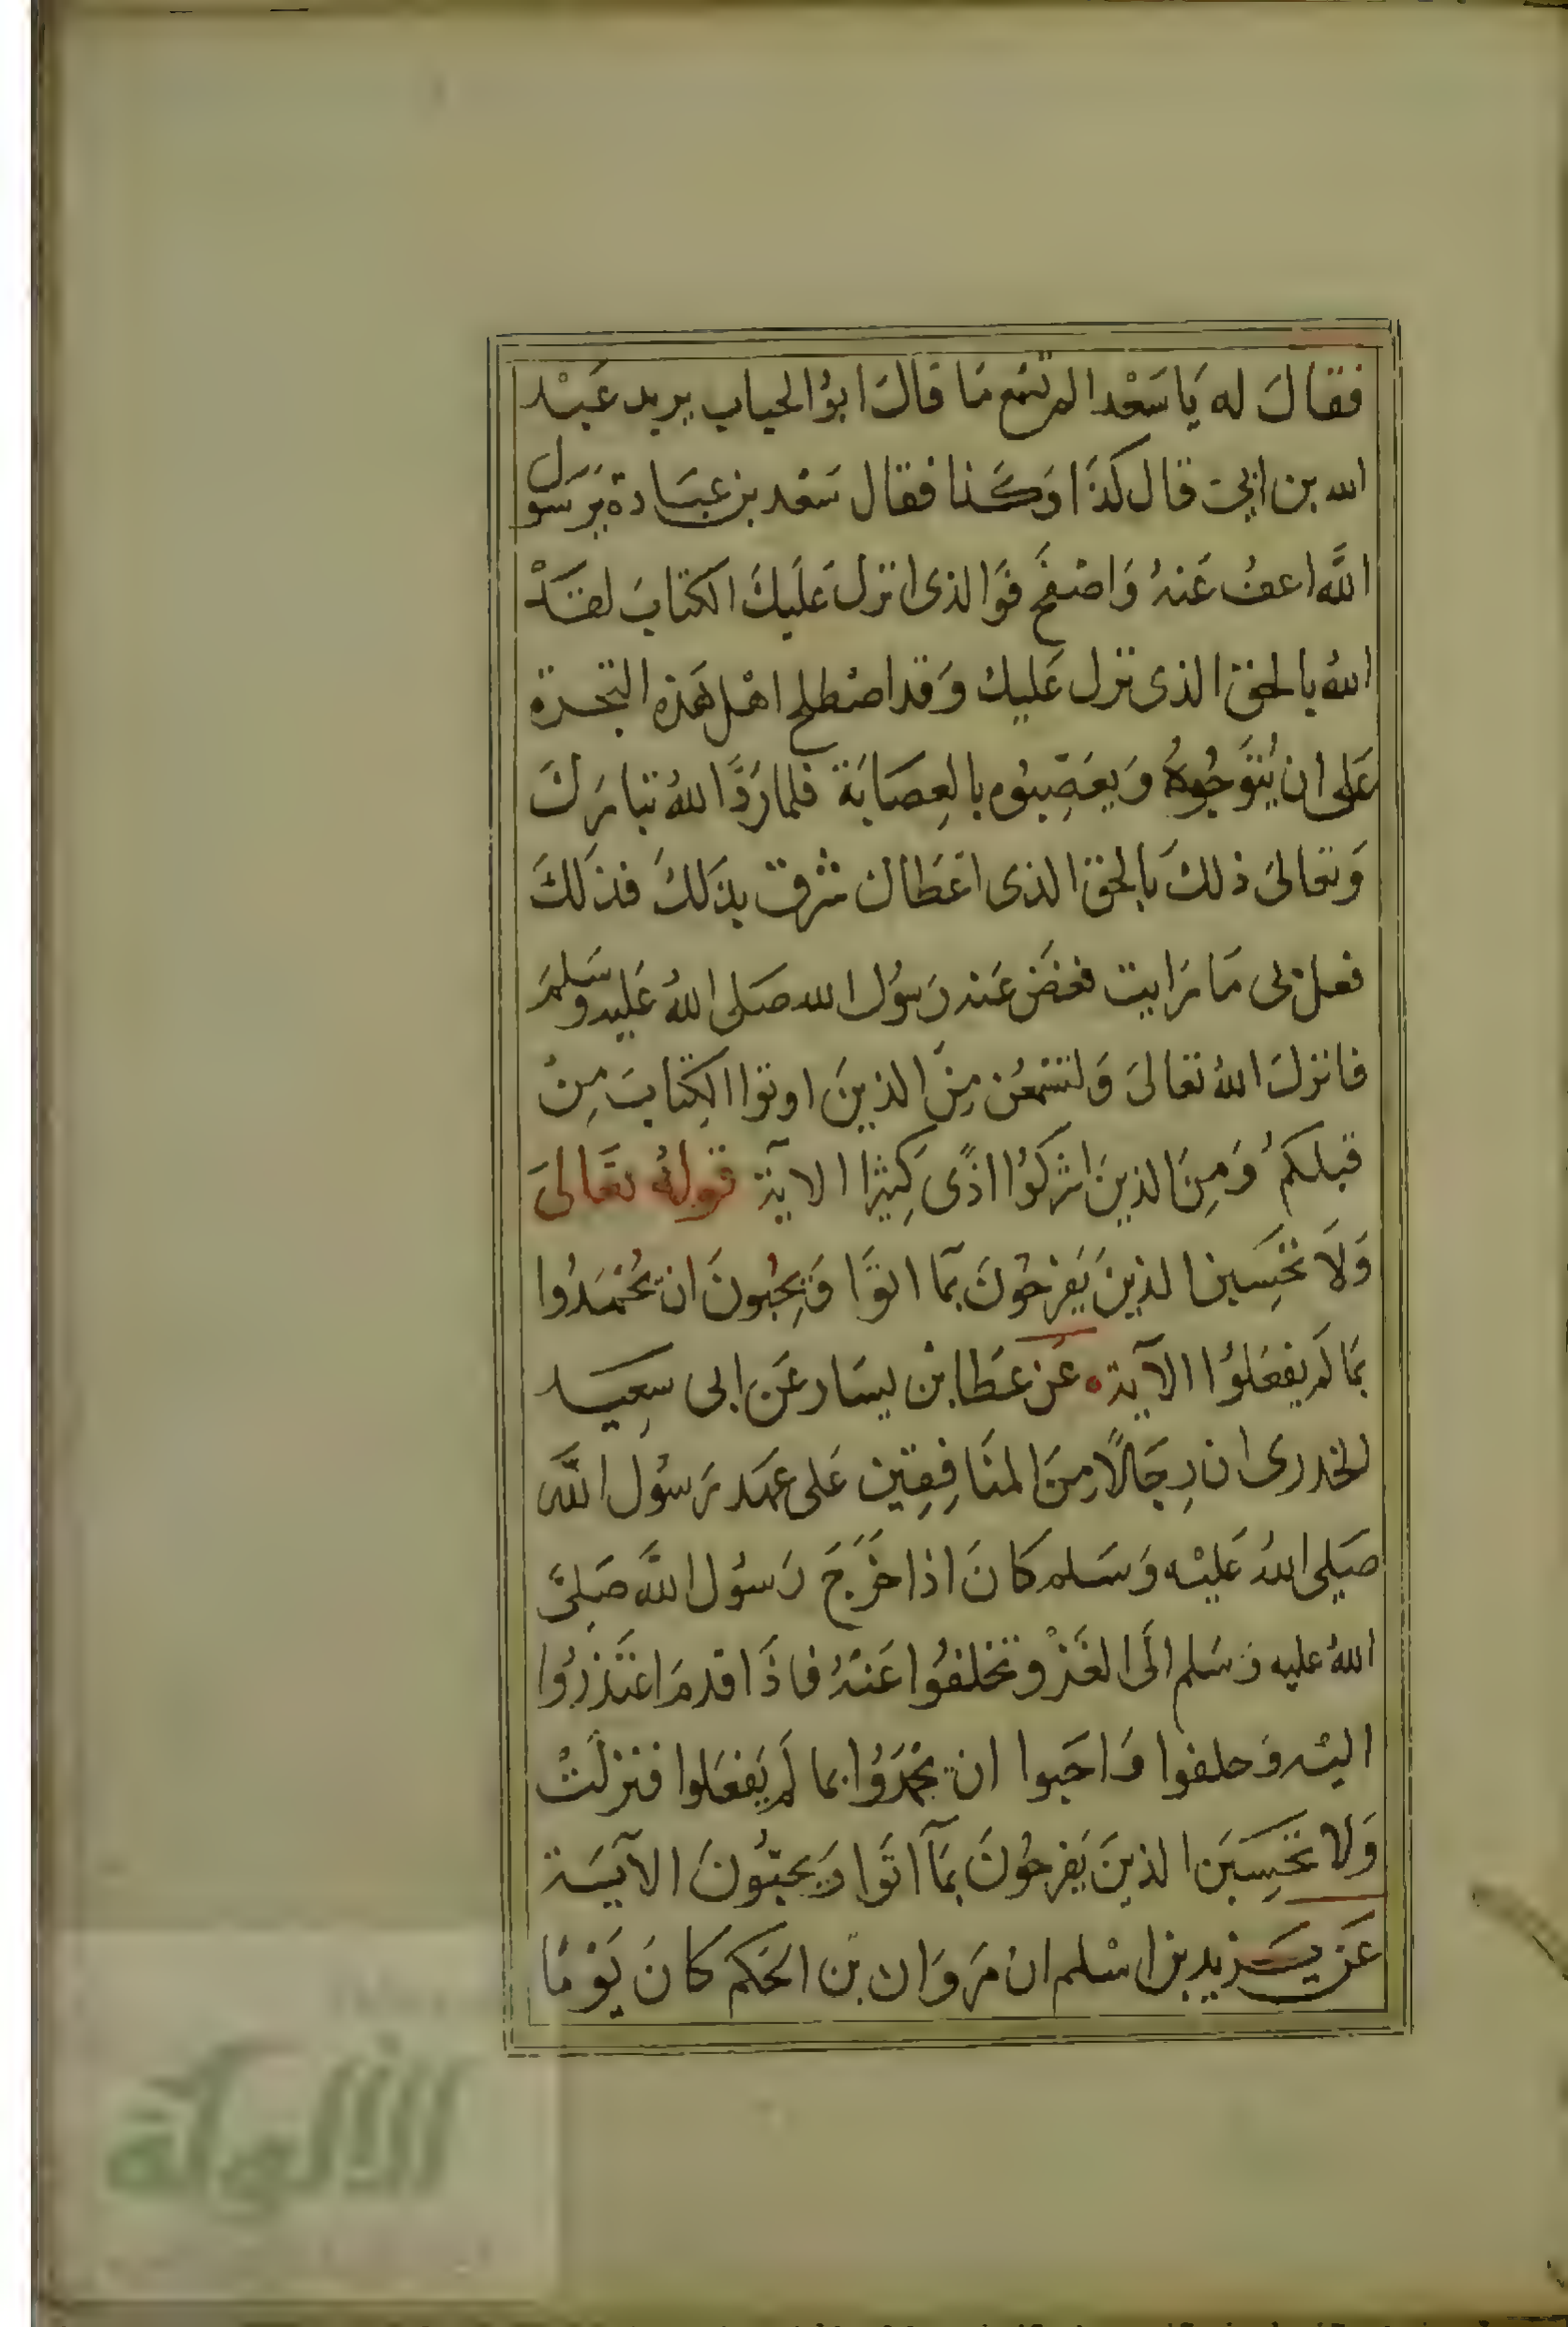 فقالَ له يَا سَعْد الم تسْمع مَا قالَ ابوُ الحباب يريد عَبْد
الله بن ابيّ قال كذَا وَكَذا فقال سَعْد بن عبَادة يَرسَوُل
اللَّه اعفُ عَنهُ وَاصْفَح فوَالذى انزل عَليكَ الكتابَ لقَدْ
اللهُ بالحق الذى نزل عَليك وَقد اصْطلح اهْل هَذه البحرة
عَلى ان يُتَوّجُوهُ وَيعَصِّبوُه بالعِصَابَة فلما رَدَّ اللهُ تبارَكَ
وَتعَالىَ ذلكَ بَالحق الذى اعْطَاك شرق بذَلكَ فذَلكَ
فعل بى مَا رَايت فغضَ عَنه رَسوُل الله صَلى اللهُ عَليه وسَلمَ
فانزلَ اللهُ تعَالىَ وَلتسْمعُن مِنَ الذينَ اوتوا الكِتابَ مِنْ
قبلكمُ وَمِنَ الذينَ اشركوُا اذًى كَثِيْرا الايَة قولهُ تعَالىَ
وَلَا تَحْسِبن الذينَ يَفرَحُونَ بمَا اتوَا وَيحِبُونَ ان يُحْمَدُوا
بمَا لَم يفعَلوُا الآية ه عَن عَطا بن يسَار عَن ابى سعِيد
الخدرى ان رِجَالًا مِنَ المنَافِقِين عَلى عهَد رَسُول اللَّه
صَلى اللهُ عَليْه وَسَلم كانَ اذا خَرَجَ رَسوُل اللَّه صَلىَّ
اللهُ عليه وَسَلم الَى الغَزْو تخلفوُا عَنهُ فاذَا قدمَ اعْتَذرُوا
اليْه وَحلفوا وَاحَبوا ان يحْمَدُوا بما لَم يَفعَلوا فنزلَتْ
وَلا تحْسِبَن الذينَ يَفرحُونَ بمَآ اتَوا وَيحبُّونَ الآيَة
عَن يَزيد بن اسْلم ان مَروَان بن الحَكم كَانَ يَوْمًا
الألوكة